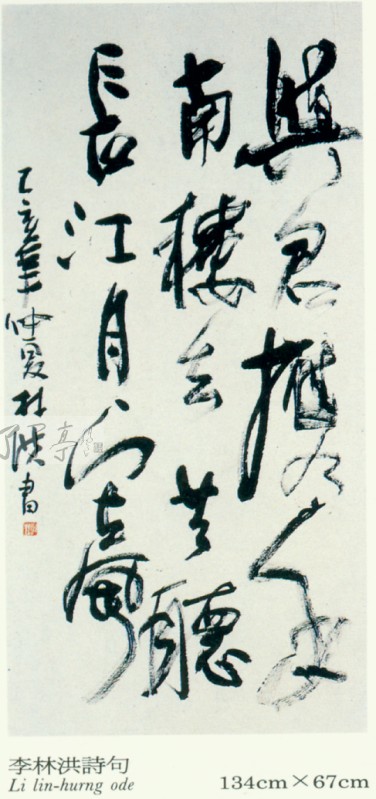 與君
南樓去共聽
長江月
乙亥年仲夏杜書
李林洪詩句
Li lin-hurng ode
134cm×67cm